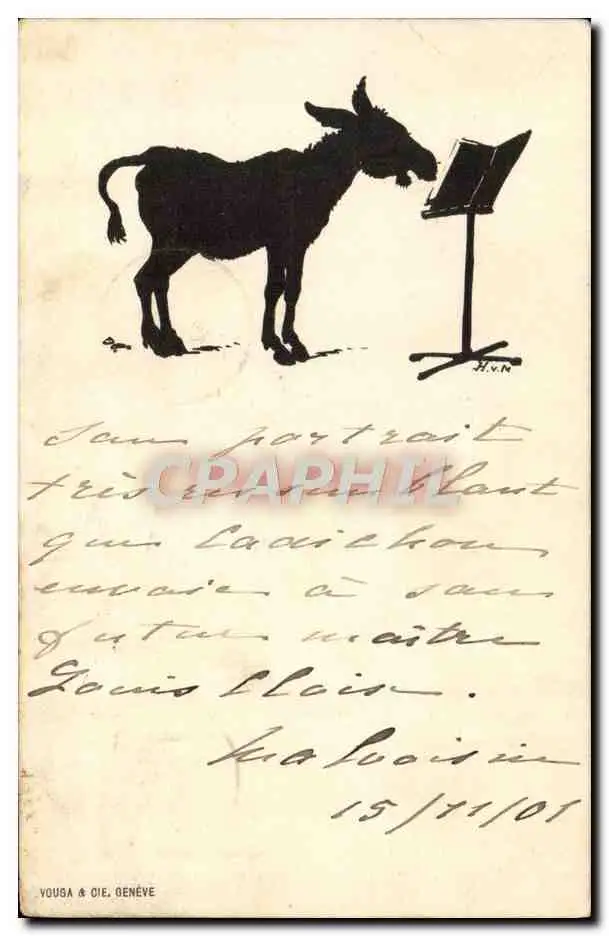 H.v.N
son portrait
très ressemblant
que Cadichon
envoie à son
futur maître
Louis
Malvoisin
15/11/01
CPARHPIL
VOUGA & CIE. GENÈVE